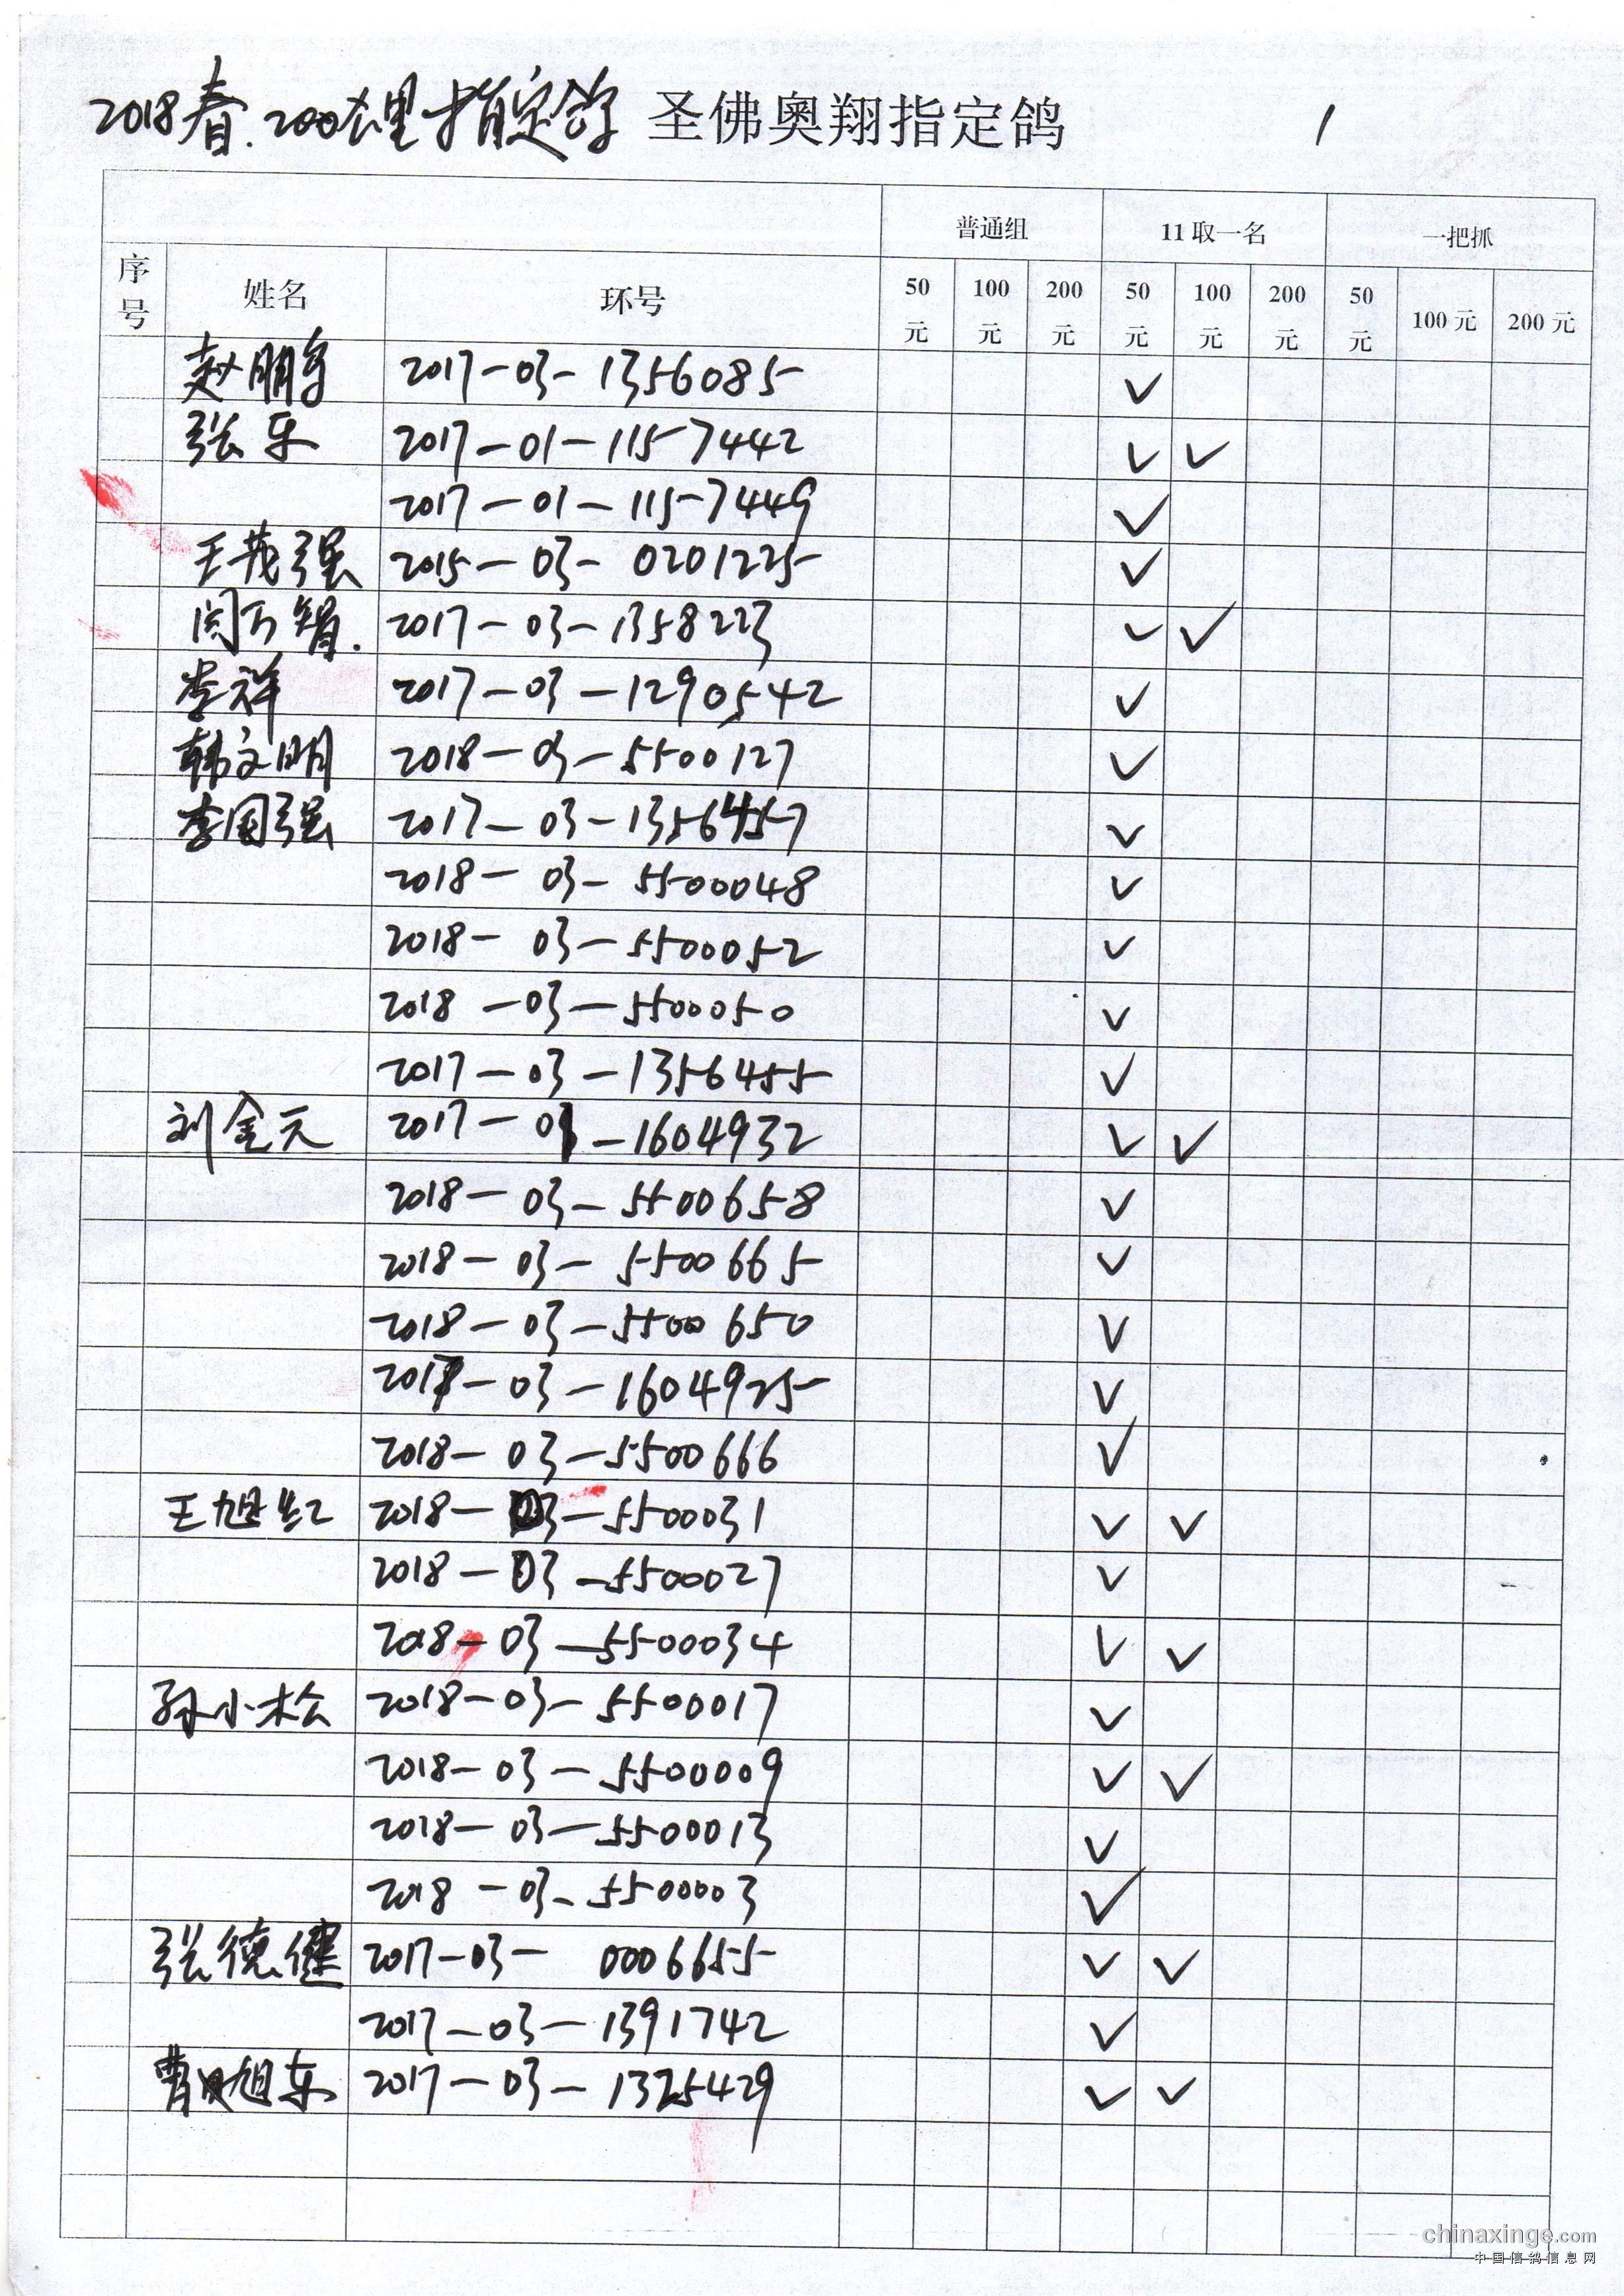 2018春.200公里指定鸽 圣佛奥翔指定鸽 1
普通组 11取一名 一把抓
序号 姓名 环号 50元 100元 200元 50元 100元 200元 50元 100元 200元
赵鹏 2017-03-1356085 ✓
张乐 2017-01-1157442 ✓ ✓
2017-01-1157449 ✓
王茂强 2015-03-0201225 ✓
闫万智. 2017-03-1358223 ✓ ✓
李祥 2017-03-1290542 ✓
韩文明 2018-03-5500127 ✓
李国强 2017-03-1356457 ✓
2018-03-5500048 ✓
2018-03-5500052 ✓
2018-03-5500050 ✓
2017-03-1356455 ✓
刘金元 2017-03-1604932 ✓ ✓
2018-03-5500658 ✓
2018-03-5500665 ✓
2018-03-5500650 ✓
2017-03-1604925 ✓
2018-03-5500666 ✓
王旭红 2018-03-5500031 ✓ ✓
2018-03-5500027 ✓
2018-03-5500034 ✓ ✓
孙小松 2018-03-5500017 ✓
2018-03-5500009 ✓ ✓
2018-03-5500013 ✓
2018-03-5500003 ✓
张德健 2017-03-0006655 ✓ ✓
2017-03-1391742 ✓
曹旭东 2017-03-1325429 ✓ ✓
chinaxinge.com
中国信鸽信息网